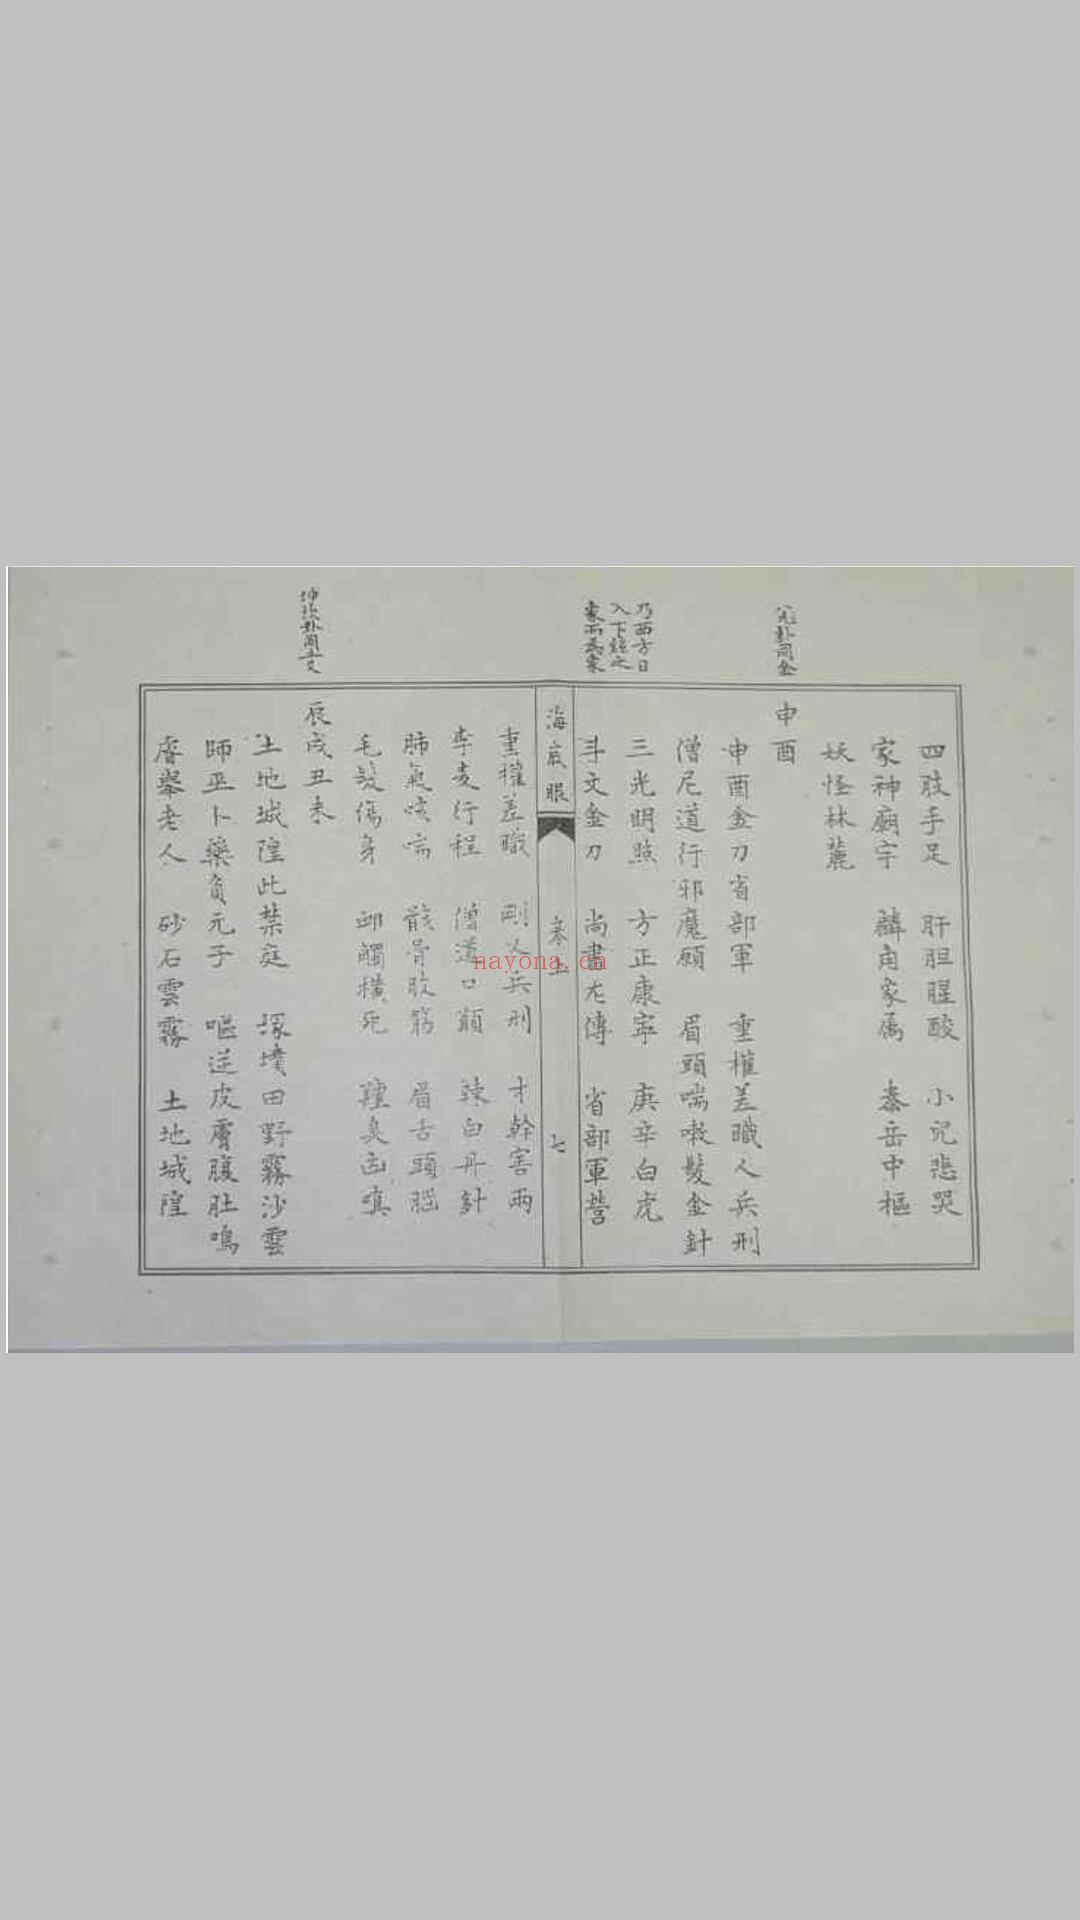 四肢手足　肝胆腥酸　小兒悲哭
家神廟宇　麟角家属　泰岳中樞
妖怪林麓
申酉
申酉金刀省部軍　重權差職人兵刑
僧尼道行邪魔願　眉頭喘嗽髮金針
三光明照　方正康寧　庚辛白虎
斗文金刀　尚書左傳　省部軍營
乃西方日
海底眼
卷上
七
重權差職　剛父兵刑　才幹害兩
李麦行程　僧道口顛　辣白丹針
肺氣咳喘　骸骨胶筋　眉舌頭腮
毛髮傷身　邱觸橫死
辰戌丑未
土地城隍此禁庭　塚墳田野霧沙雲
師巫卜藥負元子　嘔逆皮膚腹肚鳴
膚舉老人　砂石雲霧　土地城隍
nayona.cn